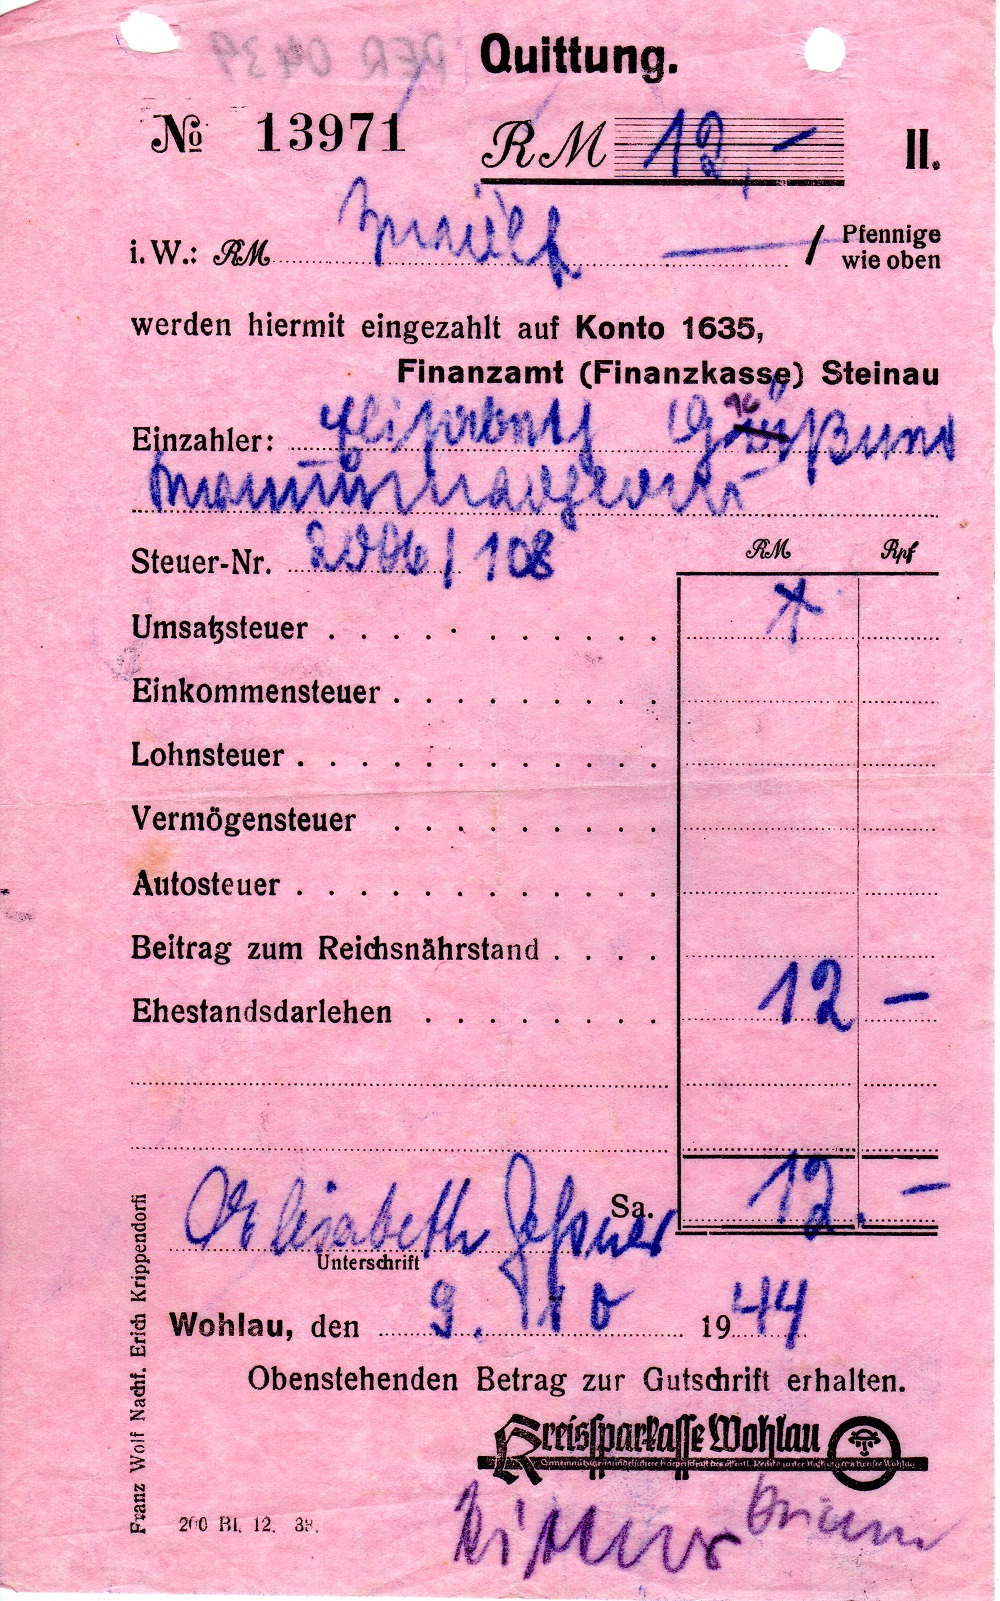 Quittung.
№ 13971 RM 12,— II.
i. W.: RM zwölf — / Pfennige
wie oben
werden hiermit eingezahlt auf Konto 1635,
Finanzamt (Finanzkasse) Steinau
Einzahler: Elisabeth
Steuer-Nr. / 108
RM Rpf
Umsatzsteuer
Einkommensteuer
Lohnsteuer
Vermögensteuer
Autosteuer
Beitrag zum Reichsnährstand
Ehestandsdarlehen 12 —
Elisabeth Geßner Sa. 12. —
Unterschrift
Wohlau, den 9. 10 1944
Obenstehenden Betrag zur Gutschrift erhalten.
Kreissparkasse Wohlau
Franz Wolf Nachf. Erich Krippendorff
200 Bl. 12. 38.